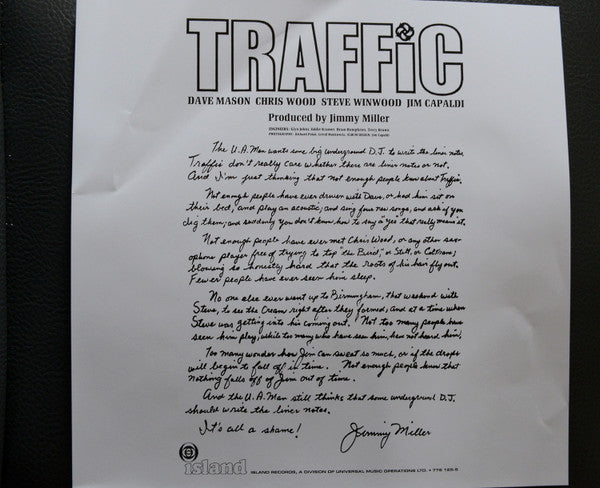 TRAFFiC
DAVE MASON CHRIS WOOD STEVE WINWOOD JIM CAPALDI
Produced by Jimmy Miller
ENGINEERS: Glyn Johns, Eddie Kramer, Brian Humphries, Terry Brown
The U.A. Man wants some big underground D.J. to write the liner notes,
Traffic don't really care whether there are liner notes or not,
And I'm just thinking that not enough people know about Traffic.
Not enough people have ever driven with Dave, or had him sit on
their bed, and play an acoustic, and sing four new songs, and ask if you
dig them; and suddenly you don't know how to say a "yes" that really means it.
Not enough people have ever met Chris Wood, or any other sax-
ophone player free of trying to top "the Bird", or Stitt, or Coltrane;
blowing so honestly hard that the roots of his hair fly out.
Fewer people have ever seen him sleep.
No one else ever went up to Birmingham, that weekend with
Steve, to see the Cream right after they formed, and at a time when
Steve was getting into his coming out. Not too many people have
seen him play, while too many who have seen him, have not heard him,
Too many wonder how Jim can sweat so much, or if the drops
will begin to fall off in time. Not enough people know that
nothing falls off of Jim out of time.
And the U.A. Man still thinks that some underground D.J.
should write the liner notes.
It's all a shame! Jimmy Miller
island ISLAND RECORDS, A DIVISION OF UNIVERSAL MUSIC OPERATIONS LTD. • 778 125-5